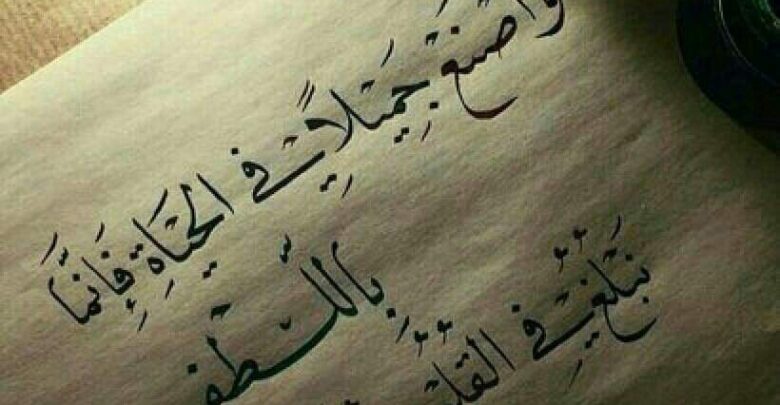 وَاصنع جَمِيلاً في الحَيَاةِ فَإِنمَّا
بِاللُّطف
نَبْلُغ في